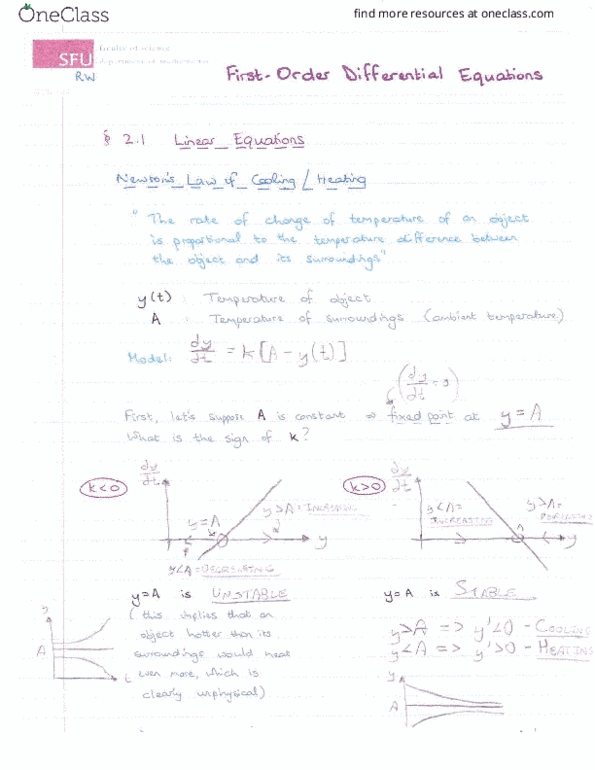 OneClass
find more resources at oneclass.com
SFU
faculty of science
department of mathematics
RW
First-Order Differential Equations
§ 2.1 Linear Equations
Newton's Law of Cooling / Heating
"The rate of change of temperature of an object
is proportional to the temperature difference between
the object and its surroundings"
y(t) : Temperature of object
A : Temperature of surroundings (ambient temperature)
Model: dy/dt = k[A - y(t)]
(dy/dt = 0)
First, let's suppose A is constant ⇒ fixed point at y = A
What is the sign of k?
k<0
dy/dt
y=A
y>A = INCREASING
y
y<A = DECREASING
k>0
dy/dt
y<A =
INCREASING
A
y>A =
y
y=A is UNSTABLE
(this implies that an
object hotter than its
surroundings would heat
even more, which is
clearly unphysical)
y
A
t
y=A is STABLE
y>A => y'<0 - COOLING
y<A => y'>0 - HEATING
y
A